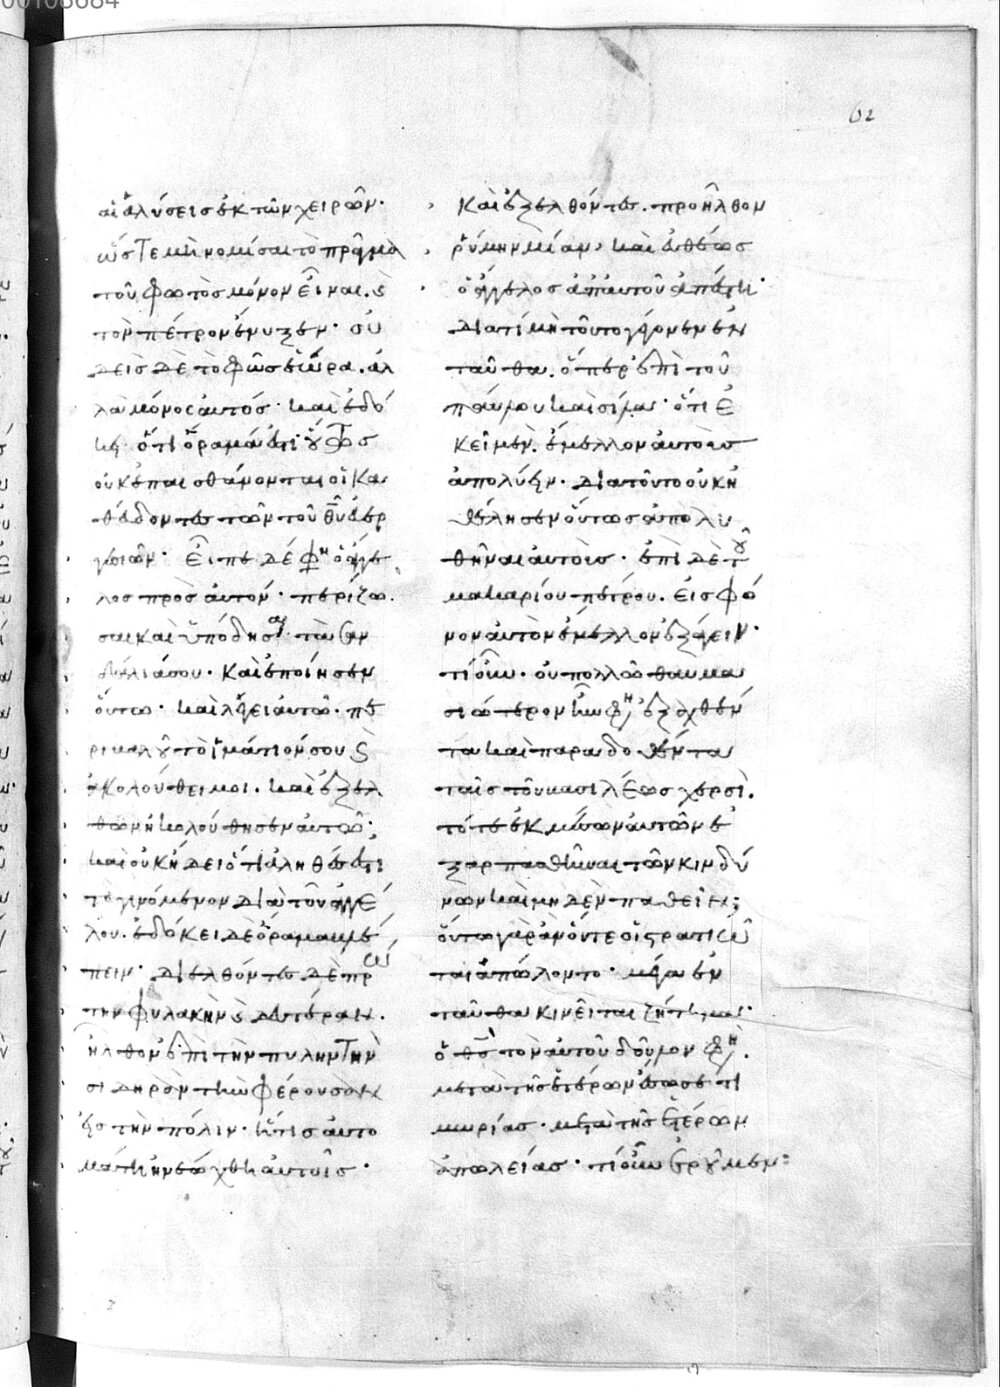 62
αἱ ἁλύσεις ἐκ τῶν χειρῶν·
ὥστε μὴ νομίσαι τὸ πρᾶγμα
τοῦ φωτὸς μόνον εἶναι. ϗ
τὸν πέτρον ἔνυξεν· οὐ
δεὶς δὲ τὸ φῶς ἑώρα. ἀλ
λὰ μόνος αὐτός· καὶ ἐδό
κει ὅτι ὅραμά ἐστι·
οὐκ ἐπαισθάνονται οἱ κα
θεύδοντες τῶν τοῦ θυ ἐνερ
γειῶν· εἶπε δέ φη ὁ ἄγγε
λος πρὸς αὐτόν· περίζω
σαι καὶ ὑπόδησαι τὰ σαν
δάλιά σου· καὶ ἐποίησεν
οὕτω· καὶ λέγει αὐτῶ· πε
ριβαλοῦ τὸ ἱμάτιόν σου ϗ
ἀκολούθει μοι. καὶ ἐξελ
θὼν ἠκολούθησεν αὐτῶ·
καὶ οὐκ ἤδει ὅτι ἀληθές ἐστι
τὸ γινόμενον διὰ τοῦ ἀγγέ
λου. ἐδόκει δὲ ὅραμα βλέ
πειν· διελθόντες δὲ πρώ
την φυλακὴν ϗ δευτέραν.
ἦλθον ἐπὶ τὴν πύλην τὴν
σιδηρὰν τὴν φέρουσαν
εἰς τὴν πόλιν· ἥτις αὐτο
μάτη ἠνεώχθη αὐτοῖς·
καὶ ἐξελθόντες. προῆλθον
ῥύμην μίαν, καὶ εὐθέως
ὁ ἄγγελος ἀπ αὐτοῦ ἀπέστη·
διατί μὴ τοῦτο γέγονεν ἐν
ταῦθα. ὅπερ ἐπὶ τοῦ
παύλου καὶ σίλα· ὅτι ἐ
κεῖ μὲν. ἔμελλον αὐτοὺς
ἀπολύειν· διατοῦτο οὐκ ἠ
θέλησεν οὕτως ἀπολυ
θῆναι αὐτοὺς· ἐπὶ δὲ τοῦ
μακαρίου πέτρου. εἰς φό
νον αὐτὸν ἔμελλον ἐξάγειν·
τί οὖν. οὐ πολλῶ θαυμα
σιώτερον ἦν φη, ἐξαχθέν
τα καὶ παραδοθέντα
ταῖς τοῦ βασιλέως χερσὶ.
τότε ἐκ μέσων αὐτῶν ἐ
ξαρπασθῆναι τῶν κινδύ
νων καὶ μηδὲν παθεῖν;
οὕτω γὰρ ἂν οὔτε οἱ στρατιῶ
ται ἀπώλοντο· μέγα ἐν
ταῦθα κινεῖται ζήτημα·
ὁ θς τὸν αὐτοῦ δοῦλον φη,
μετὰ τῆς ἑτέρων ἔσωσε τι
μωρίας· μετὰ τῆς ἑτέρων
ἀπωλείας· τί οὖν ἐροῦμεν: